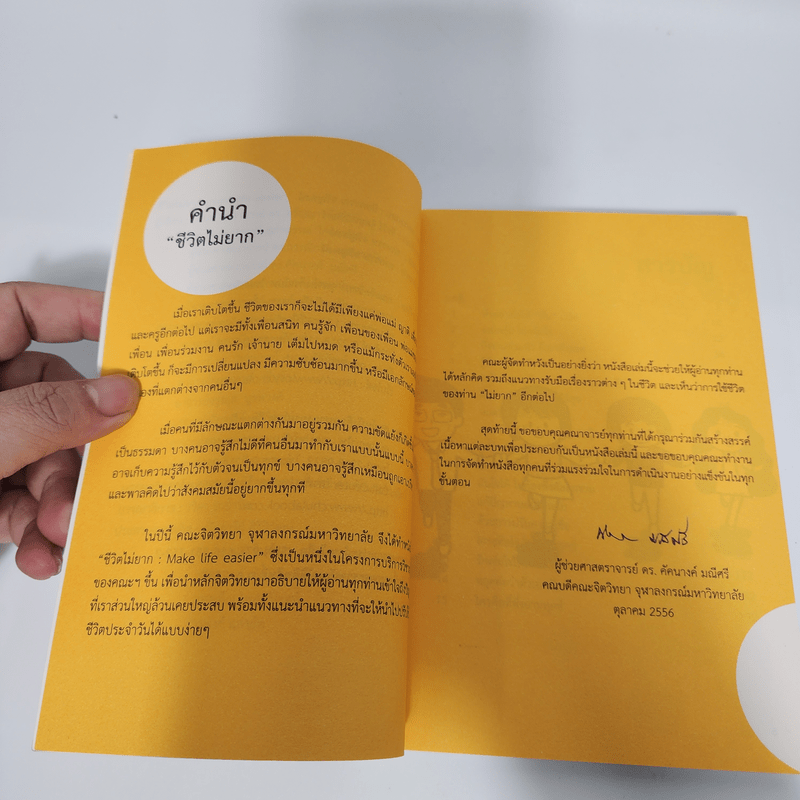 คำนำ
“ชีวิตไม่ยาก”
เมื่อเราเติบโตขึ้น ชีวิตของเราก็จะไม่ได้มีเพียงแค่พ่อแม่ ญาติ
และครูอีกต่อไป แต่เราจะมีทั้งเพื่อนสนิท คนรู้จัก เพื่อนของเพื่อน
เพื่อน เพื่อนร่วมงาน คนรัก เจ้านาย เต็มไปหมด หรือแม้กระทั่งตัวเรา
เติบโตขึ้น ก็จะมีการเปลี่ยนแปลง มีความซับซ้อนมากขึ้น หรือมีเอกลักษณ์
ที่แตกต่างจากคนอื่นๆ
เมื่อคนที่มีลักษณะแตกต่างกันมาอยู่รวมกัน ความขัดแย้งก็
เป็นธรรมดา บางคนอาจรู้สึกไม่ดีที่คนอื่นมาทำกับเราแบบนั้นแบบนี้
อาจเก็บความรู้สึกไว้กับตัวจนเป็นทุกข์ บางคนอาจรู้สึกเหมือนถูกเอา
และพาลคิดไปว่าสังคมสมัยนี้อยู่ยากขึ้นทุกที
ในปีนี้ คณะจิตวิทยา จุฬาลงกรณ์มหาวิทยาลัย จึงได้ทำ
“ชีวิตไม่ยาก : Make life easier” ซึ่งเป็นหนึ่งในโครงการบริการ
ของคณะฯ ขึ้น เพื่อนำหลักจิตวิทยามาอธิบายให้ผู้อ่านทุกท่านเข้าใจถึง
ที่เราส่วนใหญ่ล้วนเคยประสบ พร้อมทั้งแนะนำแนวทางที่จะให้นำไป
ชีวิตประจำวันได้แบบง่ายๆ
คณะผู้จัดทำหวังเป็นอย่างยิ่งว่า หนังสือเล่มนี้จะช่วยให้ผู้อ่านทุกท่าน
ได้หลักคิด รวมถึงแนวทางรับมือเรื่องราวต่าง ๆ ในชีวิต และเห็นว่าการใช้ชีวิต
ของท่าน “ไม่ยาก” อีกต่อไป
สุดท้ายนี้ ขอขอบคุณคณาจารย์ทุกท่านที่ได้กรุณาร่วมกันสร้างสรรค์
เนื้อหาแต่ละบทเพื่อประกอบกันเป็นหนังสือเล่มนี้ และขอขอบคุณคณะทำงาน
ในการจัดทำหนังสือทุกคนที่ร่วมแรงร่วมใจในการดำเนินงานอย่างแข็งขันในทุก
ขั้นตอน
ผู้ช่วยศาสตราจารย์ ดร. คัคนางค์ มณีศรี
คณบดีคณะจิตวิทยา จุฬาลงกรณ์มหาวิทยาลัย
ตุลาคม 2556